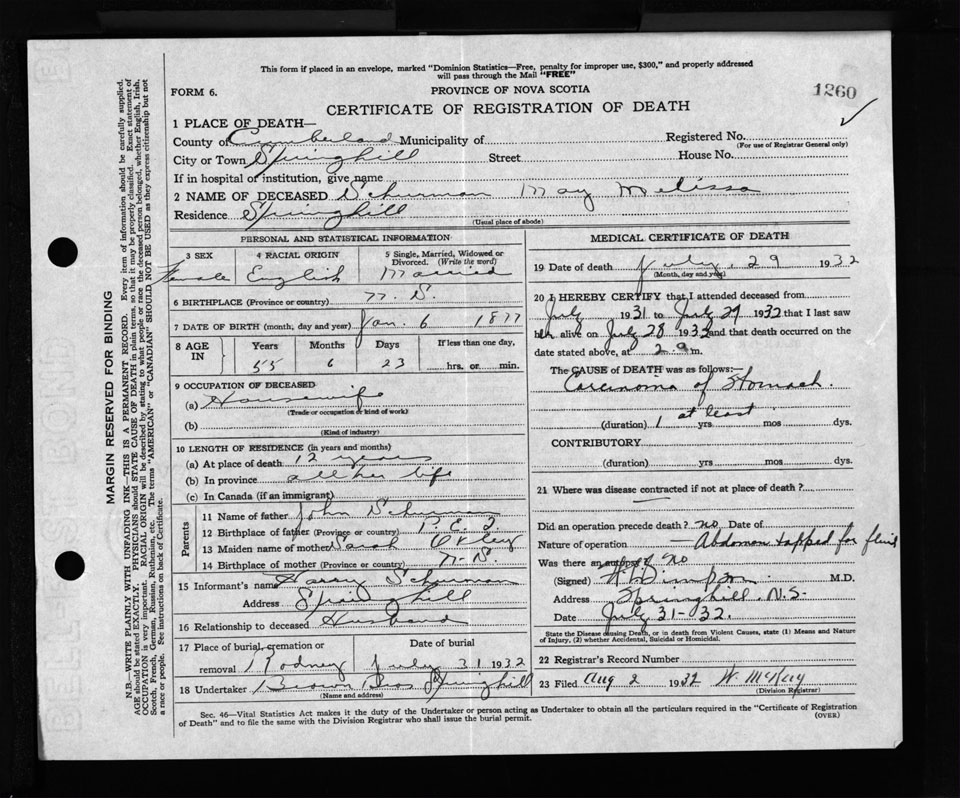 This form if placed in an envelope, marked "Dominion Statistics—Free, penalty for improper use, $300," and properly addressed
will pass through the Mail "FREE"
FORM 6.
PROVINCE OF NOVA SCOTIA
1260
CERTIFICATE OF REGISTRATION OF DEATH
1 PLACE OF DEATH—
County of Cumberland Municipality of Registered No.
(For use of Registrar General only)
City or Town Springhill Street House No.
If in hospital of institution, give name
2 NAME OF DECEASED Schurman May Melissa
Residence Springhill
(Usual place of abode)
PERSONAL AND STATISTICAL INFORMATION
3 SEX 4 RACIAL ORIGIN 5 Single, Married, Widowed or Divorced. (Write the word)
Female English Married
6 BIRTHPLACE (Province or country) N. S.
7 DATE OF BIRTH (month, day and year) Jan. 6 1877
8 AGE IN Years Months Days If less than one day,
55 6 23 hrs. or min.
9 OCCUPATION OF DECEASED
(a) Housewife
(Trade or occupation or kind of work)
(b)
(Kind of industry)
10 LENGTH OF RESIDENCE (in years and months)
(a) At place of death 12 years
(b) In province all her life
(c) In Canada (if an immigrant)
Parents
11 Name of father John Schurman
12 Birthplace of father (Province or country) P. E. I
13 Maiden name of mother Sarah
14 Birthplace of mother (Province or country) N. S.
15 Informant's name Harry Schurman
Address Springhill
16 Relationship to deceased Husband
17 Place of burial, cremation or removal Rodney
Date of burial July 31 1932
18 Undertaker Brown Bros Springhill
(Name and address)
MEDICAL CERTIFICATE OF DEATH
19 Date of death July, 29 1932
(Month, day and year)
20 I HEREBY CERTIFY that I attended deceased from
July 1931 to July 29 1932 that I last saw
her alive on July 28 1932 and that death occurred on
date stated above, at 2 a m.
The CAUSE of DEATH was as follows:—
Carcinoma of Stomach.
at least
(duration) 1 yrs mos dys.
CONTRIBUTORY
(duration) yrs mos dys.
21 Where was disease contracted if not at place of death?
Did an operation precede death? no Date of
Nature of operation — Abdomen tapped for fluid
Was there an autopsy? no
(Signed) M.D.
Address Springhill. N.S.
Date July 31-32.
State the Disease causing Death, or in death from Violent Causes, state (1) Means and Nature
of Injury, (2) whether Accidental, Suicidal or Homicidal.
22 Registrar's Record Number
23 Filed Aug 2 1932 W. McKay
(Division Registrar)
Sec. 46—Vital Statistics Act makes it the duty of the Undertaker or person acting as Undertaker to obtain all the particulars required in the "Certificate of Registration
of Death" and to file the same with the Division Registrar who shall issue the burial permit.
(OVER)
MARGIN RESERVED FOR BINDING
N.B.—WRITE PLAINLY WITH UNFADING INK—THIS IS A PERMANENT RECORD. Every item of information should be carefully supplied.
AGE should be stated EXACTLY. PHYSICIANS should STATE CAUSE OF DEATH in plain terms, so that it may be properly classified. Exact statement of
OCCUPATION is very important. RACIAL ORIGIN will be described by stating to what people or race the deceased person belonged, whether English, Irish,
Scotch, French, German, Russian, Ruthenian, etc. The terms "AMERICAN" or "CANADIAN" SHOULD NOT BE USED as they express citizenship but not
a race or people. See instructions on back of Certificate.